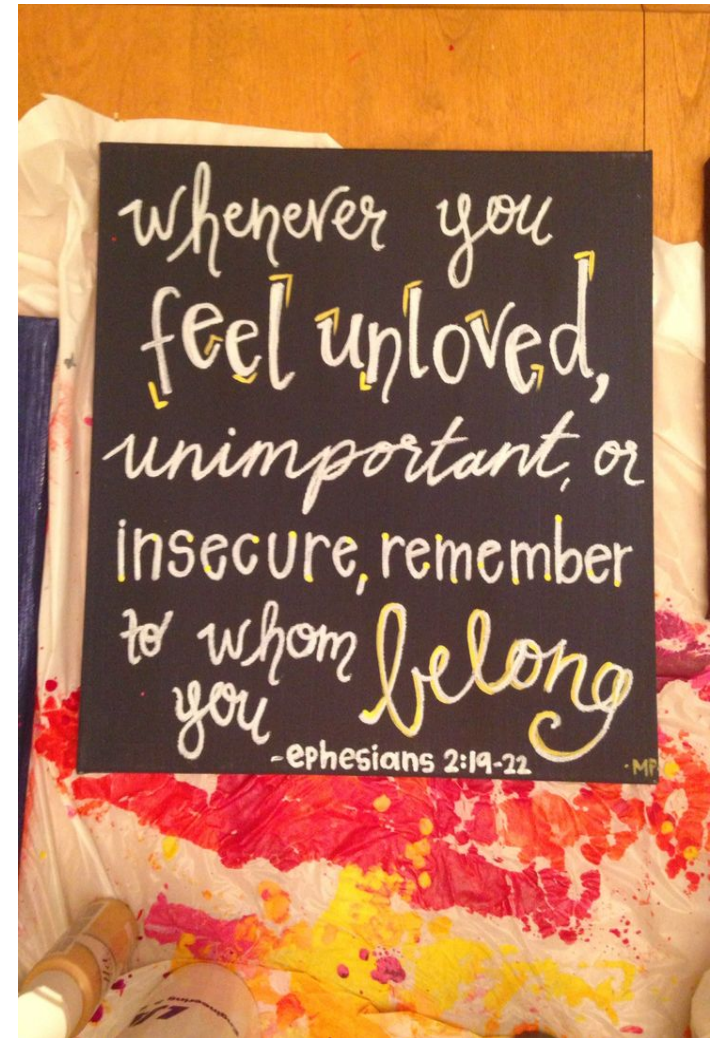 whenever you
feel unloved,
unimportant, or
insecure, remember
to whom
you belong
-ephesians 2:19-22
-MP